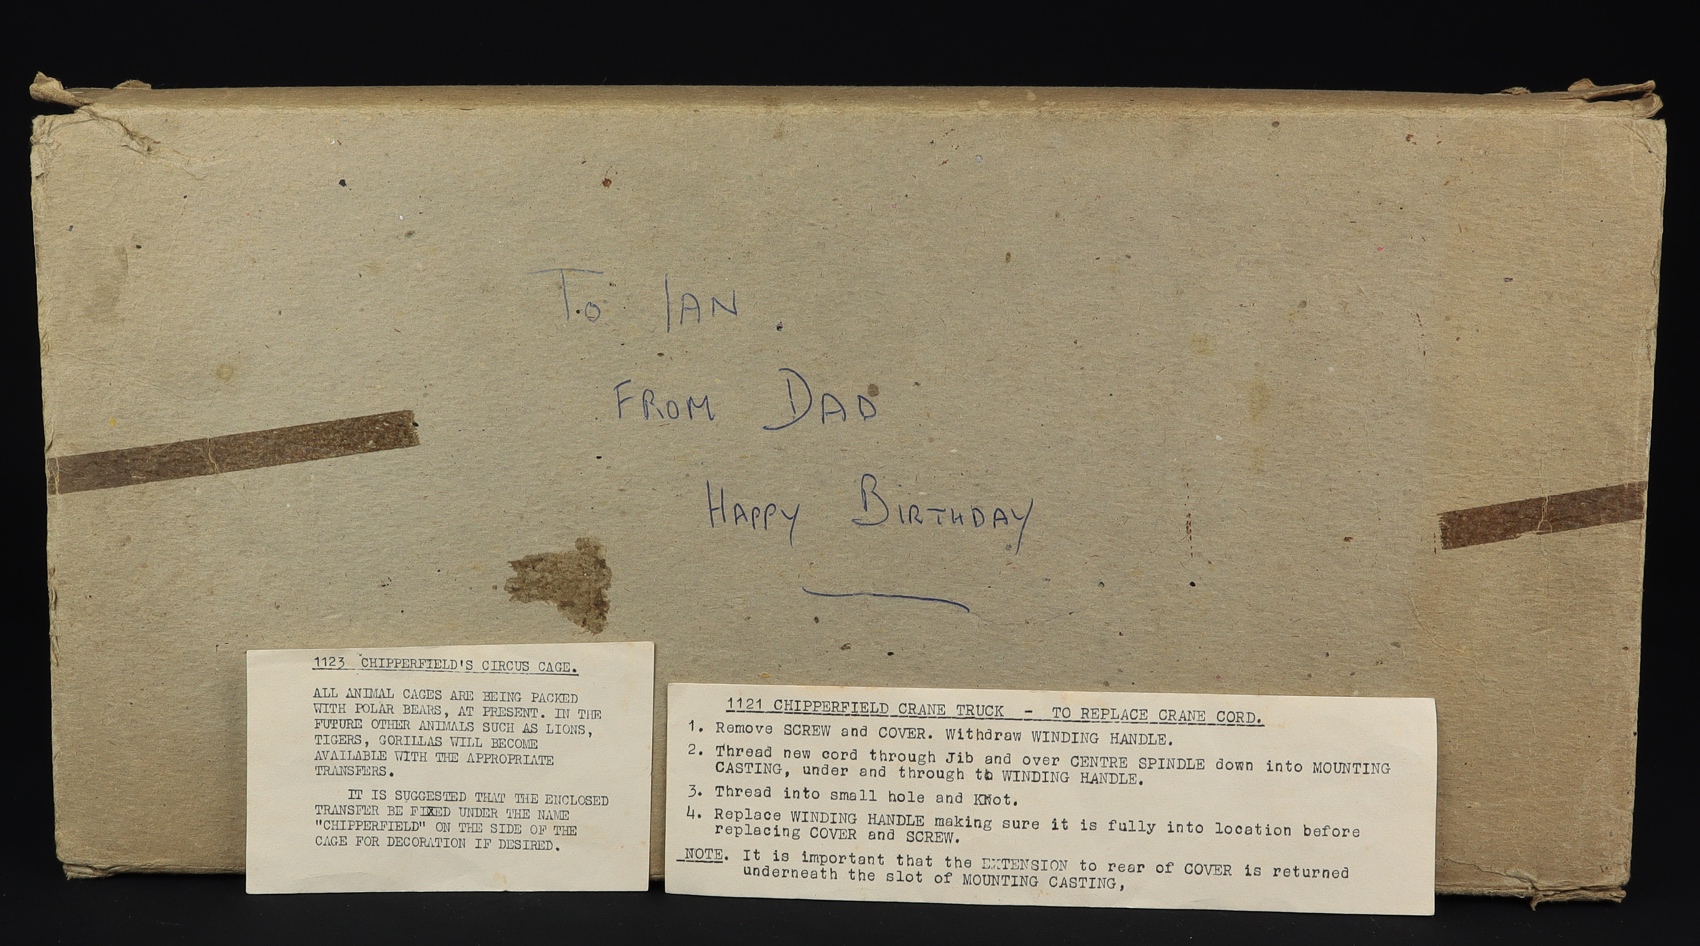 To IAN.
FROM DAD
HAPPY BIRTHDAY
1123 CHIPPERFIELD'S CIRCUS CAGE.
ALL ANIMAL CAGES ARE BEING PACKED
WITH POLAR BEARS, AT PRESENT. IN THE
FUTURE OTHER ANIMALS SUCH AS LIONS,
TIGERS, GORILLAS WILL BECOME
AVAILABLE WITH THE APPROPRIATE
TRANSFERS.
IT IS SUGGESTED THAT THE ENCLOSED
TRANSFER BE FIXED UNDER THE NAME
"CHIPPERFIELD" ON THE SIDE OF THE
CAGE FOR DECORATION IF DESIRED.
1121 CHIPPERFIELD CRANE TRUCK - TO REPLACE CRANE CORD.
1. Remove SCREW and COVER. Withdraw WINDING HANDLE.
2. Thread new cord through Jib and over CENTRE SPINDLE down into MOUNTING
CASTING, under and through to WINDING HANDLE.
3. Thread into small hole and Knot.
4. Replace WINDING HANDLE making sure it is fully into location before
replacing COVER and SCREW.
NOTE. It is important that the EXTENSION to rear of COVER is returned
underneath the slot of MOUNTING CASTING,